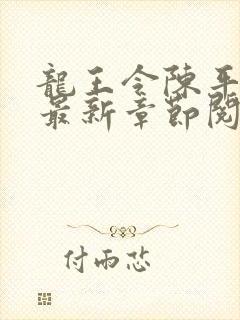 龍王令陳平
最新章節閱
付雨芯